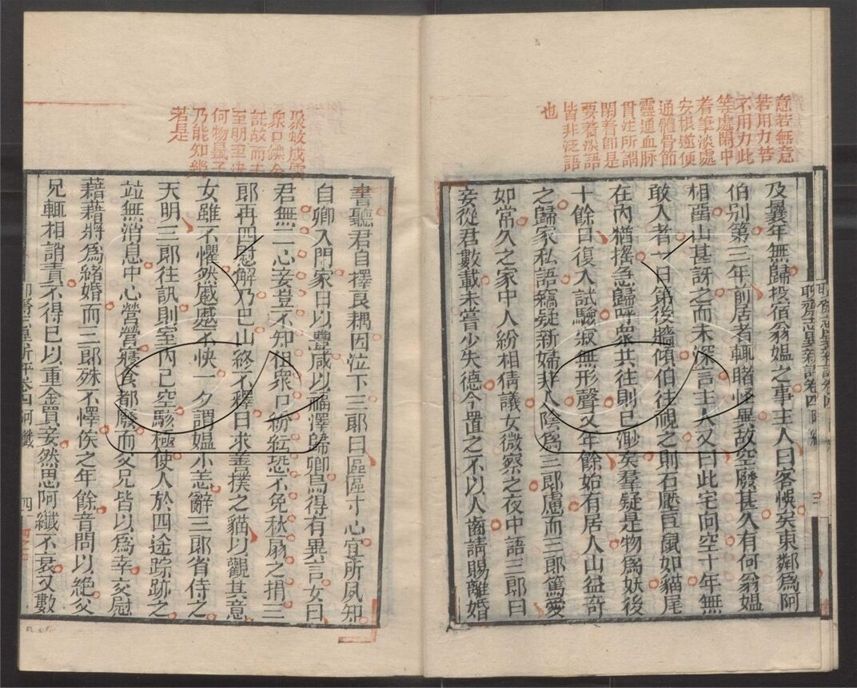 意若無意
若用力苦
不用力此
等處閒中
着筆淡處
安根遂使
通體骨節
靈通血脉
貫注所謂
閑着即是
要着淡語
皆非泛語
也
及曩年無歸投宿翁媼之事主人曰客悞矣東鄰爲阿
伯別第三年前居者輒睹怪異故空廢甚久有何翁媼
相留山甚訝之而未深言主人又曰此宅向空十年無
敢入者一日第後牆傾伯往視之則石壓巨鼠如貓尾
在內猶搖急歸呼衆共往則已渺矣羣疑是物爲妖後
十餘日復入試驗寂無形聲又年餘始有居人山益奇
之歸家私語竊疑新婦非人陰爲三郎慮而三郎篤愛
如常久之家中人紛相猜議女微察之夜中語三郎曰
妾從君數載未嘗少失德今置之不以人齒請賜離婚
聊齋志異新評卷四 阿纖
聚蚊成雷
衆口鑠金
至明至決
何物量子
乃能知幾
若是
書聽君自擇良耦因泣下三郎曰區區寸心宜所夙知
自卿入門家日以豐咸以福澤歸卿烏得有異言女曰
君無二心妾豈不知但衆口紛紜恐不免秋扇之捐三
郎再四慰解乃已山終不釋日求善撲之貓以觀其意
女雖不懼然蹙蹙不快一夕謂媼小恙辭三郎省侍之
天明三郎往訊則室內已空駭極使人於四途踪跡之
並無消息中心營營寢食都廢而父兄皆以爲幸交慰
藉藉將爲續婚而三郎殊不懌俟之年餘音問已絕父
兄輒相誚責不得已以重金買妾然思阿纖不衰又數
聊齋志異新評卷四 阿纖
四